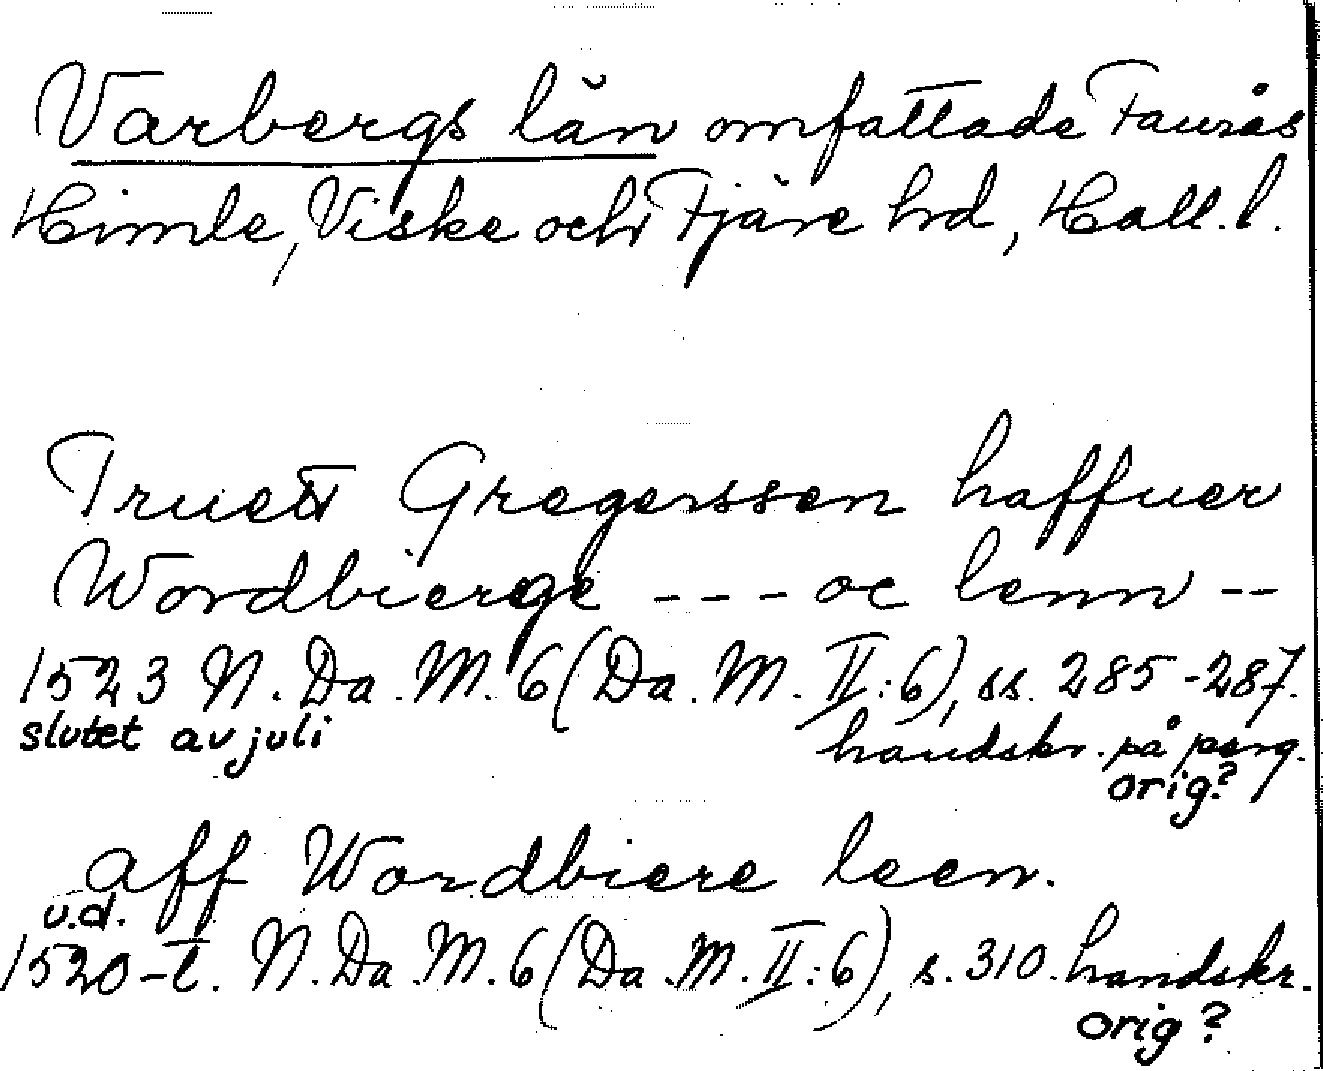 Varbergs län omfattade Faurås
Himle, Viske och Fjäre hd, Hall. l.
Truett Gregerssen haffuer
Wordbierge --- oc lenn --
1523 N. Da. M. 6 (Da. M. II:6), ss. 285-287.
slutet av juli
handskr. på perg.
orig?
aff Wordbiere leen.
u.d.
1520-t. N. Da. M. 6 (Da. M. II:6), s. 310. handskr.
orig?